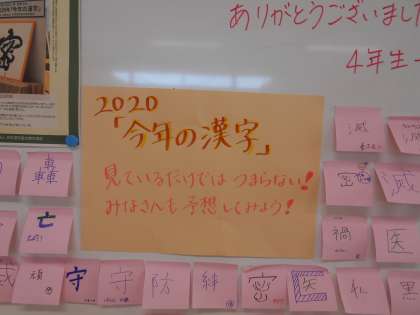 ありがとうございました
4年生一
2020
「今年の漢字」
見ているだけではつまらない!
みなさんも予想してみよう!
滅
轟
密
滅
亡
禍
医
頑
守
守
防
絆
密
医
私
黒